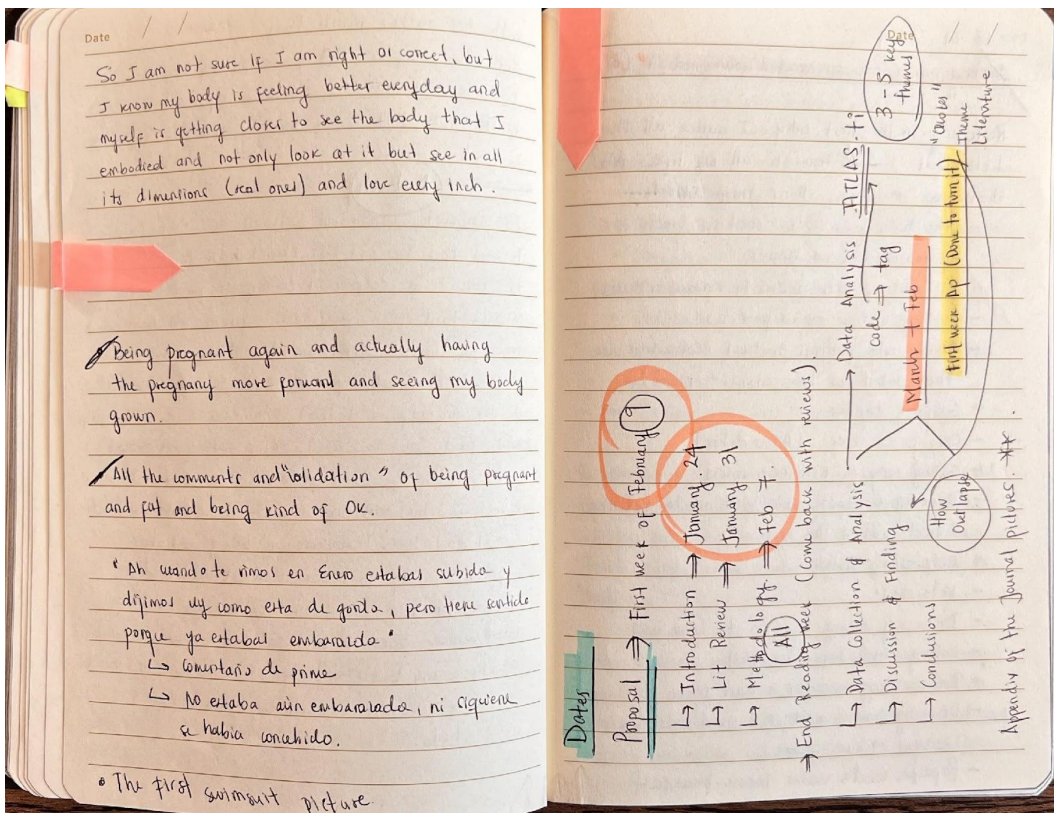 Date / /
So I am not sure if I am right or correct, but
I know my body is feeling better everyday and
myself is getting closer to see the body that I
embodied and not only look at it but see in all
its dimensions (real ones) and love every inch.
Being pregnant again and actually having
the pregnany more forward and seeing my body
grown.
All the comments and "validation" of being pregnant
and fat and being kind of OK.
"Ah cuando te vimos en Enero estabas subida y
dijimos uy como esta de gorda, pero tiene sentido
porque ya estabas embarazada"
↳ comentario de prima
↳ No estaba aún embarazada, ni siquiera
se habia concebido.
• The first swimsuit picture.
Date / /
Dates
Proposal ⇒ First week of February 9
↳ Introduction ⇒ January 24
↳ Lit Review ⇒ January 31
↳ Methodology ⇒ Feb 7.
All
⇒ End Reading week (come back with reviews).
↳ Data Collection & Analysis → Data Analysis ATLAS.ti
code ⇒ tag
3-5 key
themes
↳ Discussion & Finding
March + Feb
↳ Conclusions
How
Overlapse
First week Ap (Done to turn it)
"Quotes"
Theme
Literature
Appendix of the Journal pictures. **